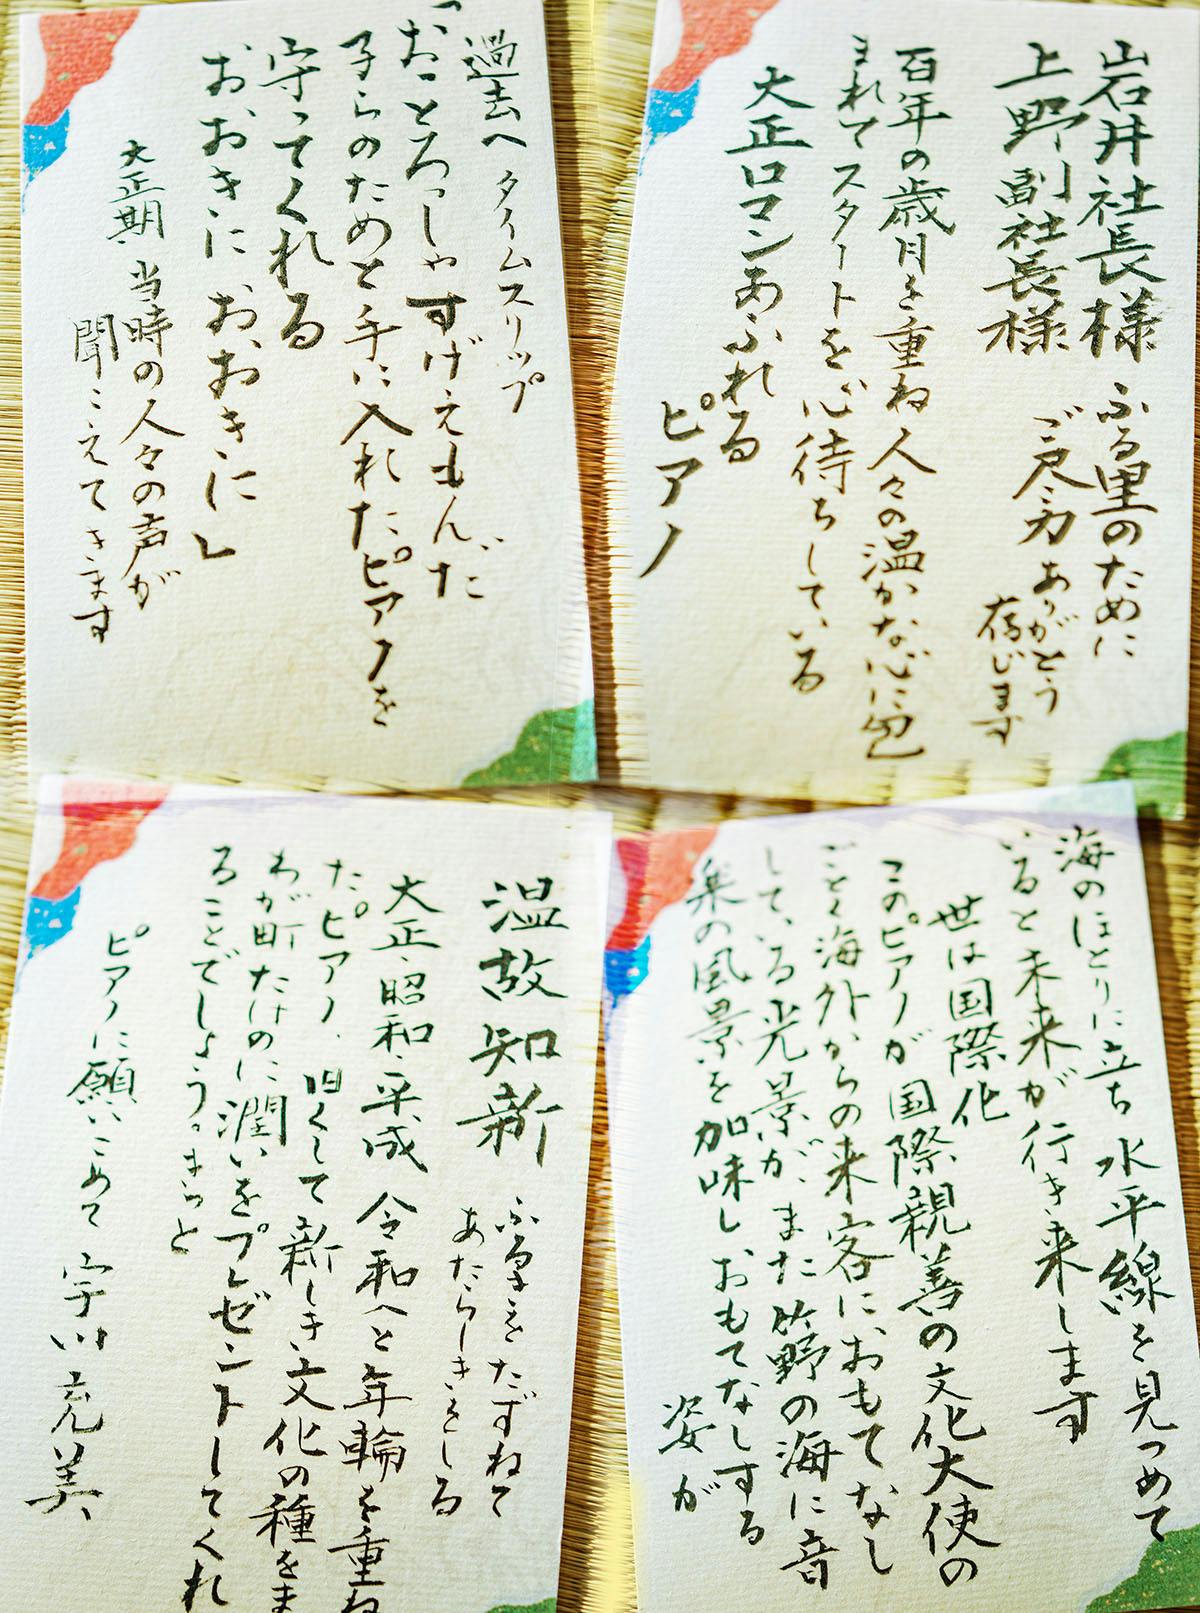 岩井社長様 ふる里のために
上野副社長様 ご尽力ありがとう
存じます
百年の歳月を重ね人々の温かな心に包
まれてスタートを心待ちしている
大正ロマンあふれる
ピアノ
過去へタイムスリップ
「おっとろっしゃすげえもんだ
子らのためと手に入れたピアノを
守ってくれる
おゝおきにおゝおきに」
大正期、当時の人々の声が
聞こえてきます
海のほとりに立ち水平線を見つめて
いると未来が行き来します
世は国際化
このピアノが国際親善の文化大使の
ごとく海外からの来客におもてなし
している光景が、また笹野の海に音
楽の風景を加味しおもてなしする
姿が
温故知新 ふるきをたずねて
あたらしきをしる
大正・昭和・平成 令和へと年輪を重ね
たピアノ、旧くして新しき文化の種をま
わが町たけのに潤いをプレゼントしてくれ
ることでしょう。きっと
ピアノに願いこめて 宇川充美